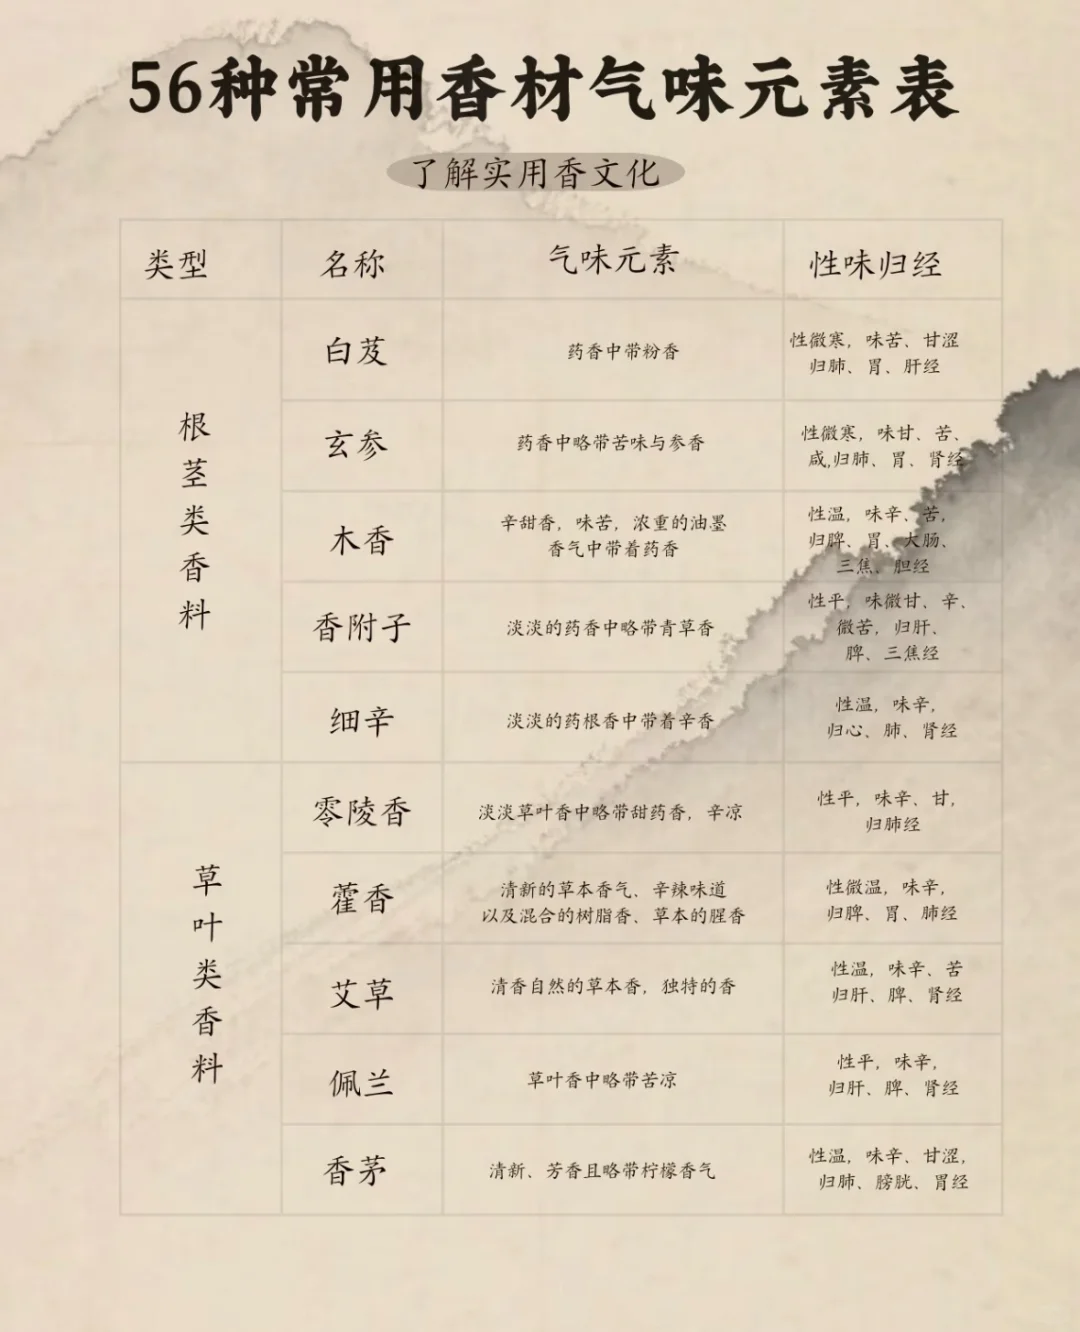 56种常用香材气味元素表
了解实用香文化
类型 名称 气味元素 性味归经
根茎类香料
白芨 药香中带粉香 性微寒，味苦、甘涩
归肺、胃、肝经
玄参 药香中略带苦味与参香 性微寒，味甘、苦、
咸,归肺、胃、肾经
木香 辛甜香，味苦，浓重的油墨
香气中带着药香 性温，味辛、苦，
归脾、胃、大肠、
三焦、胆经
香附子 淡淡的药香中略带青草香 性平，味微甘、辛、
微苦，归肝、
脾、三焦经
细辛 淡淡的药根香中带着辛香 性温，味辛，
归心、肺、肾经
草叶类香料
零陵香 淡淡草叶香中略带甜药香，辛凉 性平，味辛、甘，
归肺经
藿香 清新的草本香气、辛辣味道
以及混合的树脂香、草本的腥香 性微温，味辛，
归脾、胃、肺经
艾草 清香自然的草本香，独特的香 性温，味辛、苦
归肝、脾、肾经
佩兰 草叶香中略带苦凉 性平，味辛，
归肝、脾、肾经
香茅 清新、芳香且略带柠檬香气 性温，味辛、甘涩，
归肺、膀胱、胃经